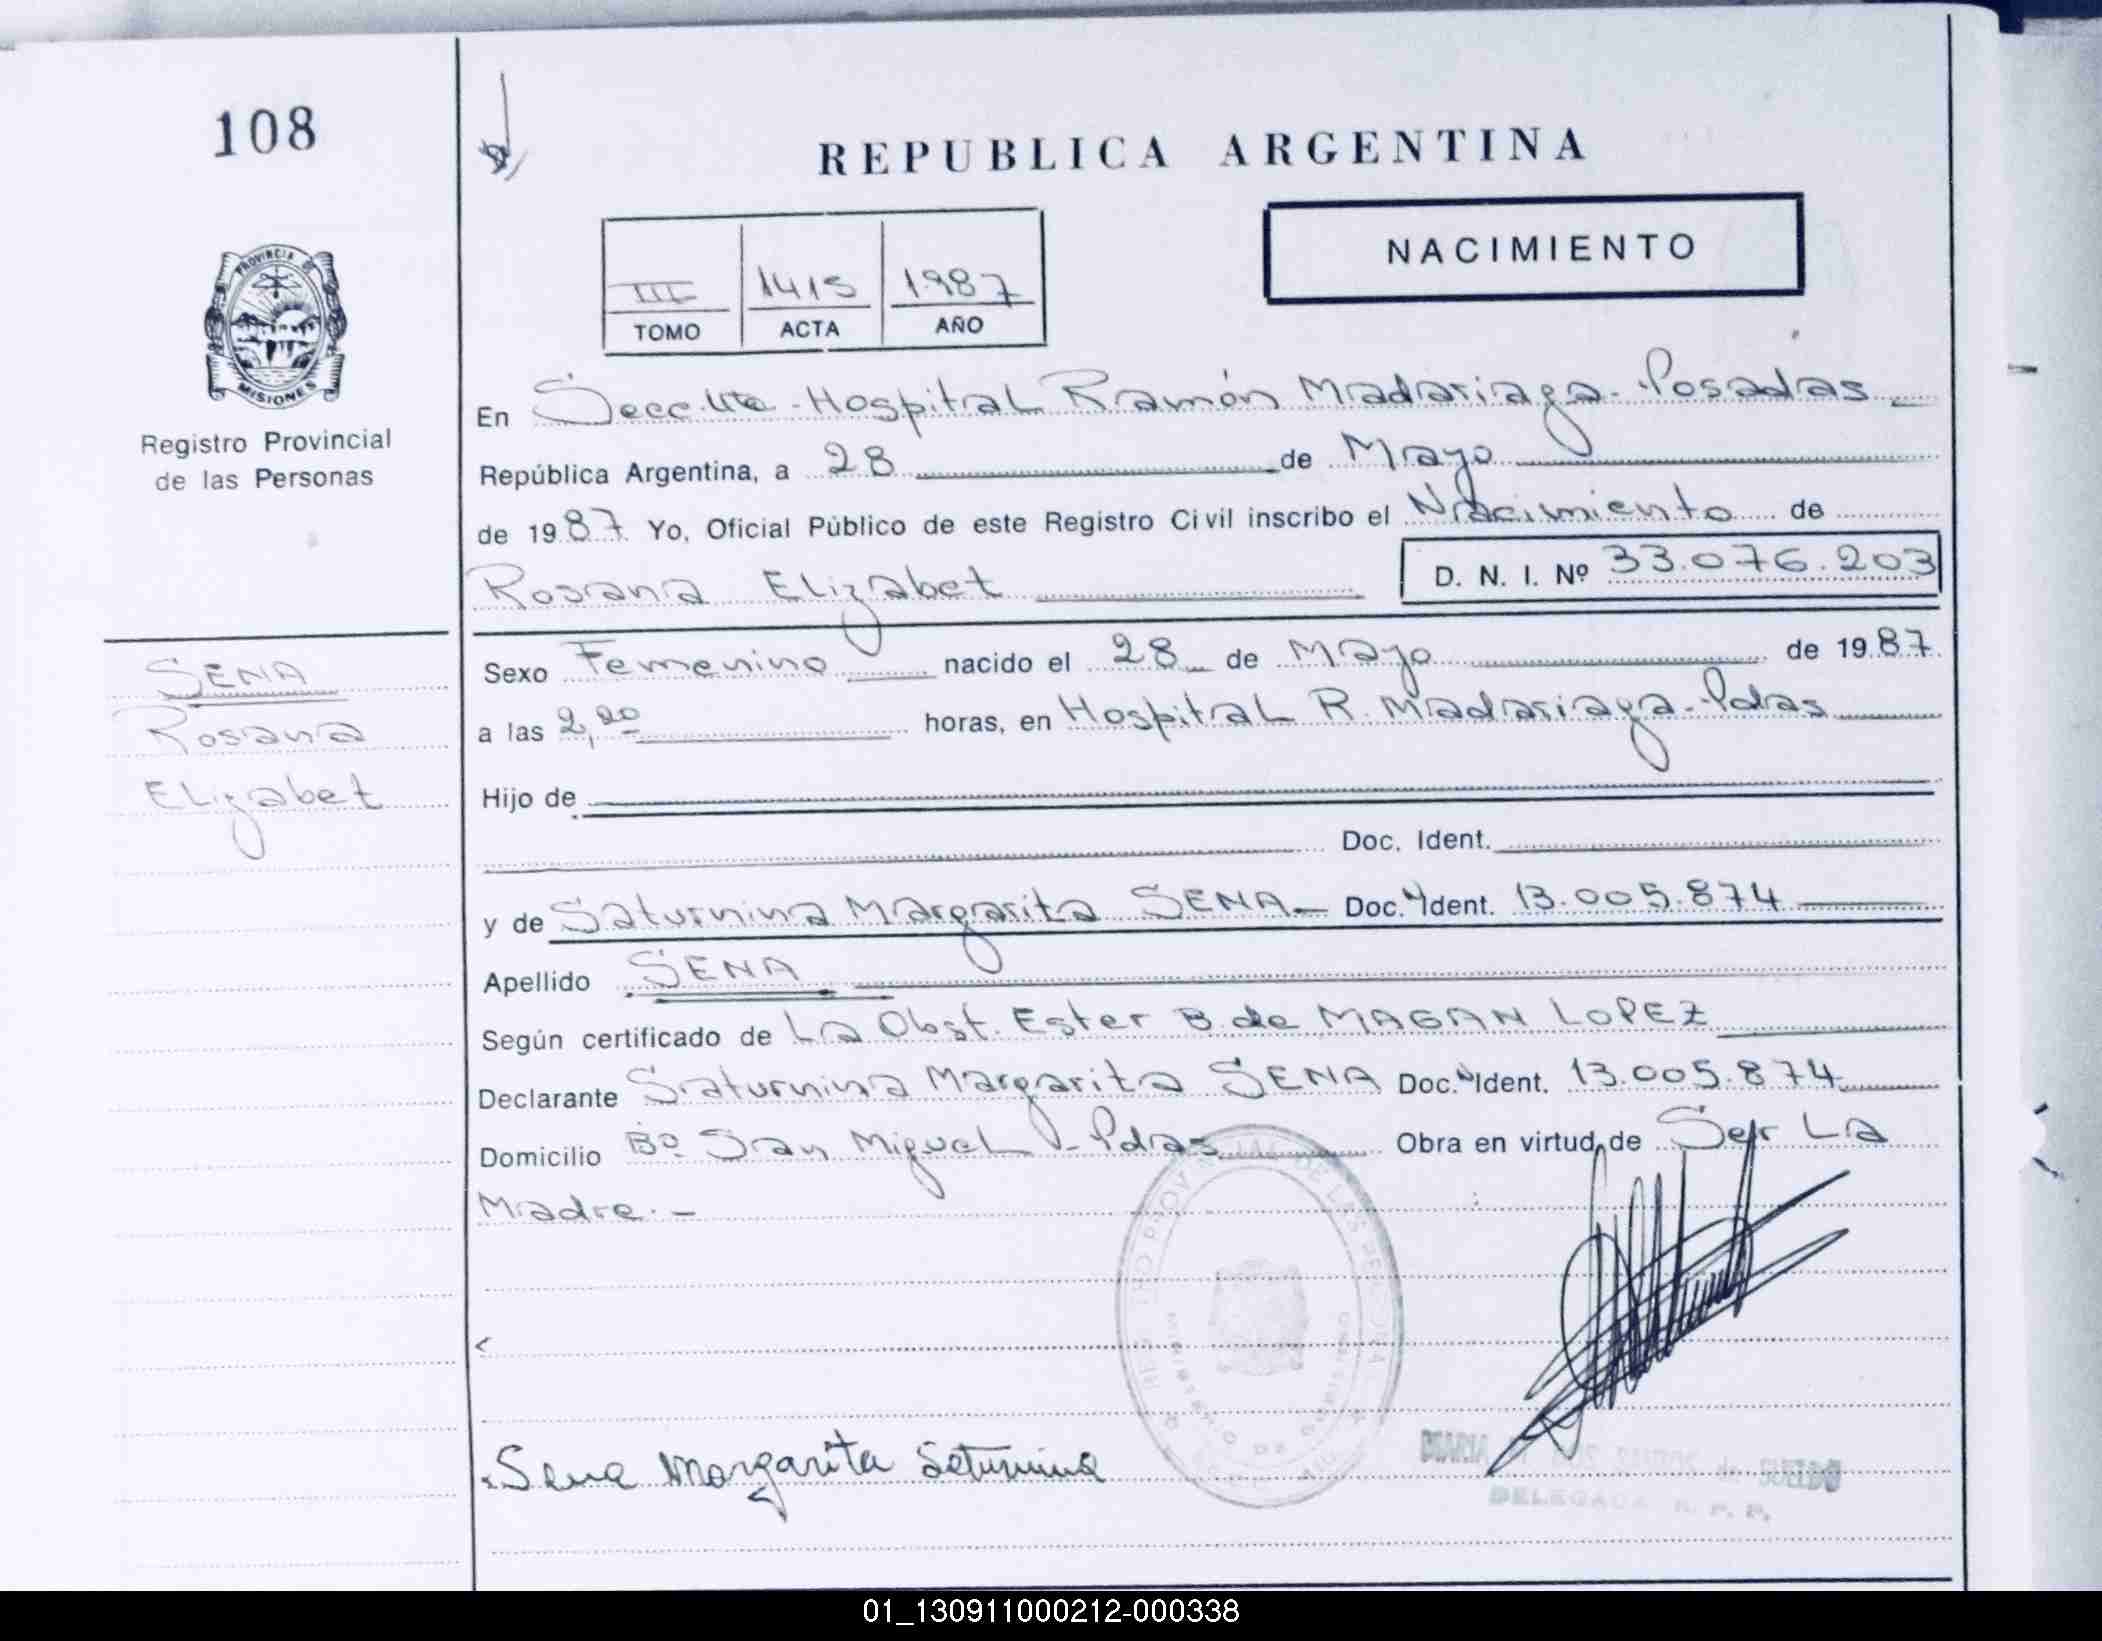 108
REPUBLICA ARGENTINA
NACIMIENTO
III 1415 1987
TOMO ACTA AÑO
PROVINCIA DE
MISIONES
Registro Provincial
de las Personas
En Secc. - Hospital Ramón Madariaga - Posadas
República Argentina, a 28 de Mayo
de 1987 Yo, Oficial Público de este Registro Civil inscribo el Nacimiento de
Rosana Elizabet D. N. I. Nº 33.076.203
SENA
Rosana
Elizabet
Sexo Femenino nacido el 28 de Mayo de 1987
a las 2,20 horas, en Hospital R. Madariaga - Pdas
Hijo de
Doc. Ident.
y de Saturnina Margarita SENA - Doc. Ident. 13.005.874
Apellido SENA
Según certificado de La Obst. Ester B. de MAGAN LOPEZ
Declarante Saturnina Margarita SENA Doc. Ident. 13.005.874
Domicilio Bº San Miguel - Pdas Obra en virtud de Ser La
Madre. -
Sena Margarita Saturnina
DELEGADA R. P. P.
01_130911000212-000338